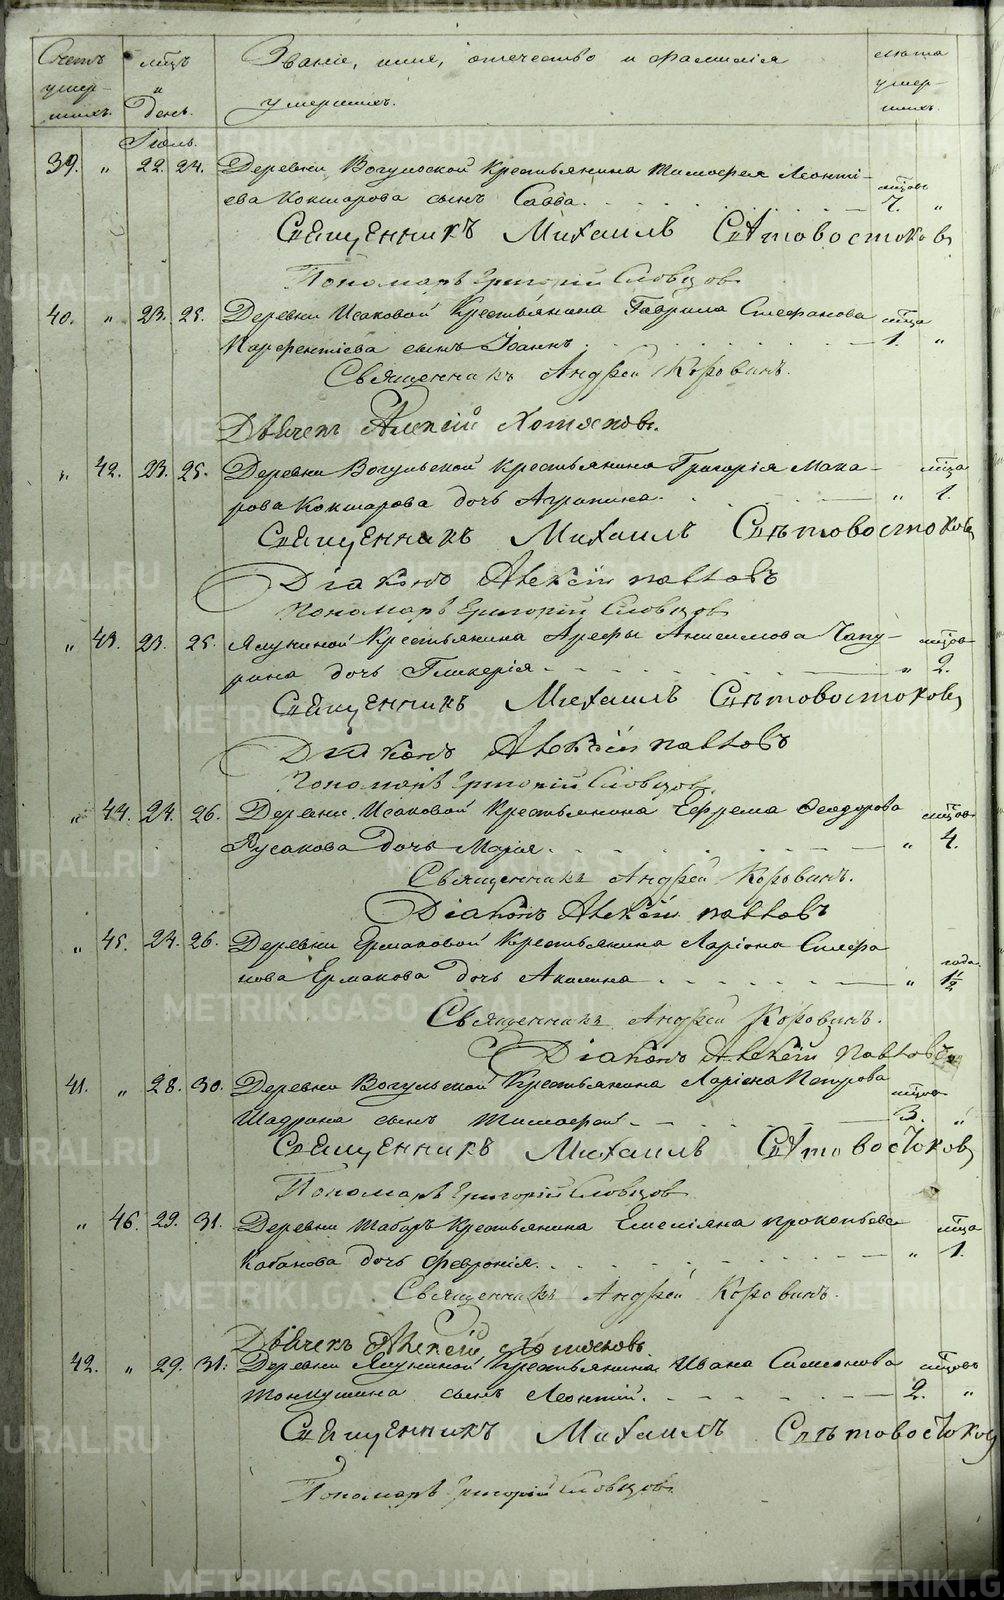 Счетъ умер-шихъ.
мѣсцъ и день.
Званіе, имя, отечество и фамилія умершихъ.
лѣта умер-шихъ.
Іюль.
39. „ 22. 24. Деревни Вогульской Крестьянина Тимофея Леонті-
ева Кокшарова сынъ Савва. мѣсцовъ 7. „
Священникъ Михаилъ Свѣтовостоковъ
Пономарь Григорій Словцовъ
40. „ 23. 25. Деревни Исаковой Крестьянина Гаврила Стефанова
Парфентіева сынъ Іоаннъ. мѣсца 1. „
Священникъ Андрей Коровинъ.
Дьячекъ Алексій Хотяновъ.
„ 42. 23. 25. Деревни Вогульской Крестьянина Григорія Мака-
рова Кокшарова дочь Агрипина. „ мѣсца 1.
Священникъ Михаилъ Свѣтовостоковъ
Діаконъ Алексій Павловъ
Пономарь Григорій Словцовъ
„ 43. 23. 25. Ялуниной Крестьянина Арефы Анисимова Чапу-
рина дочь Гликерія „ мѣсцовъ 2.
Священникъ Михаилъ Свѣтовостоковъ
Діаконъ Алексій Павловъ
Пономарь Григорій Словцовъ
„ 44. 24. 26. Деревни Исаковой Крестьянина Ефрема Ѳеодорова
Русакова дочь Марія. „ мѣсцовъ 4.
Священникъ Андрей Коровинъ.
Діаконъ Алексій Павловъ
„ 45. 24. 26. Деревни Ермаковой Крестьянина Ларіона Стефа
нова Ермакова дочь Акилина „ года 1½
Священникъ Андрей Коровинъ.
Діаконъ Алексій Павловъ
41. „ 28. 30. Деревни Вогульской Крестьянина Ларіона Петрова
Шадрина сынъ Тимофей. мѣсцовъ 3. „
Священникъ Михаилъ Свѣтовостоковъ
Пономарь Григорій Словцовъ
„ 46. 29. 31. Деревни Таборъ Крестьянина Емеліяна Прокопьева
Кабанова дочь Февронія. „ мѣсца 1.
Священникъ Андрей Коровинъ.
Дьячекъ Алексій Хотяновъ.
42. „ 29. 31. Деревни Ялуниной Крестьянина Ивана Симонова
Тонкушина сынъ Леонтій. мѣсцовъ 2. „
Священникъ Михаилъ Свѣтовостоковъ
Пономарь Григорій Словцовъ
METRIKI.GASO-URAL.RU